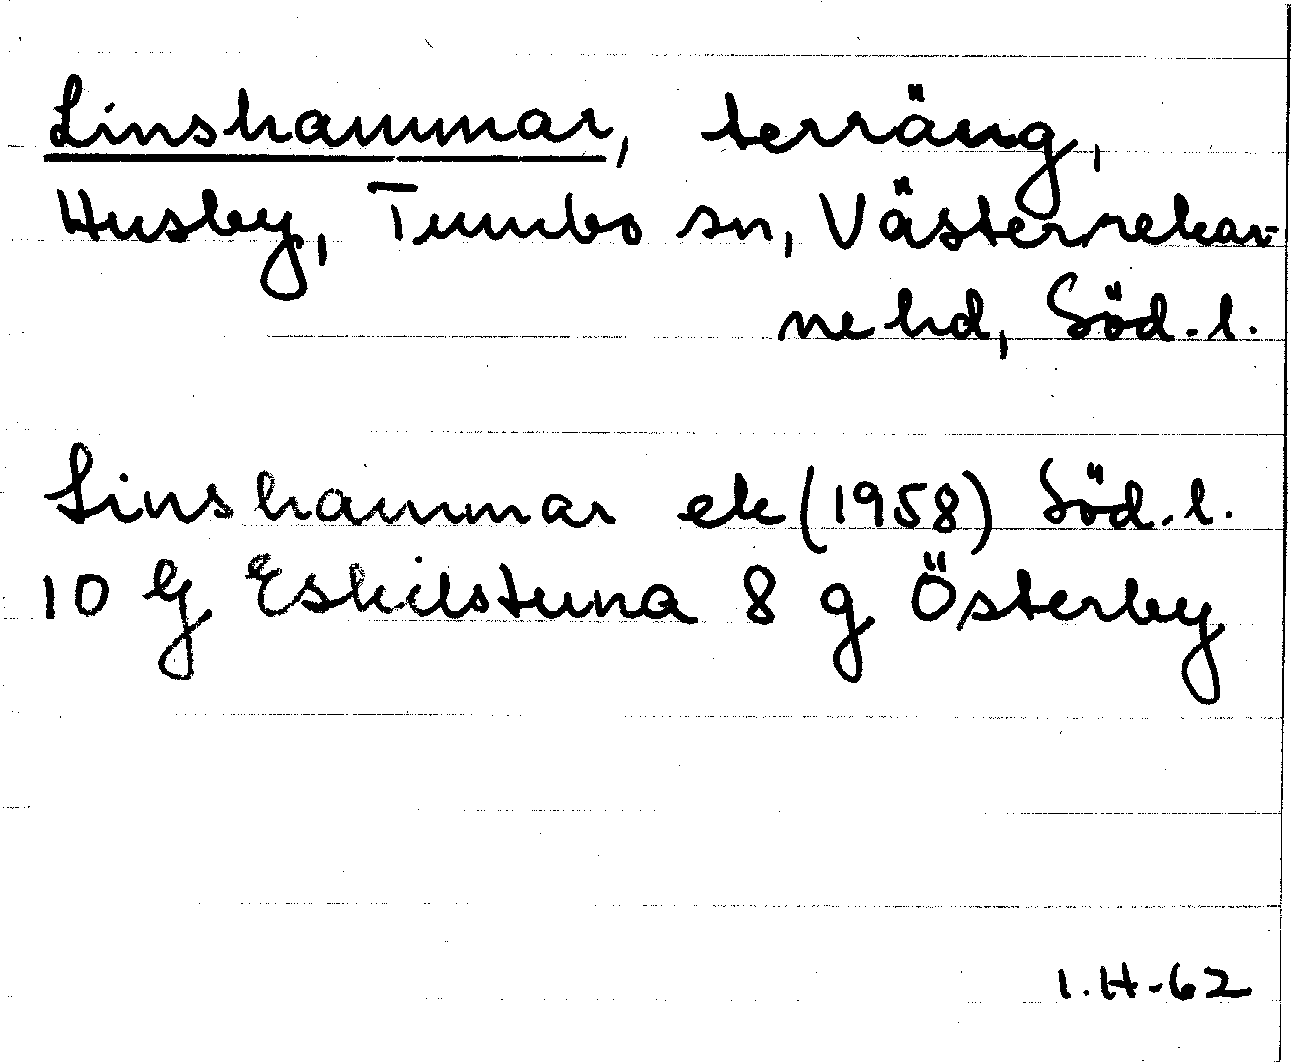 Linshammar, terräng,
Husby, Tumbo sn, Västerrekar-
ne hd, Söd.l.
Linshammar ek (1958) Söd.l.
10 G Eskilstuna 8 g Österby
I.H-62